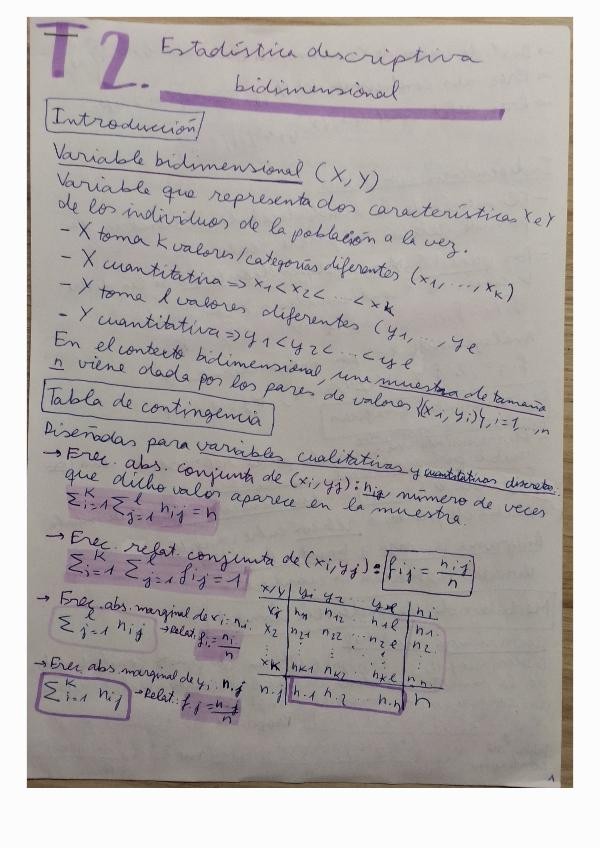 T2. Estadística descriptiva
bidimensional
Introducción
Variable bidimensional (X, Y)
Variable que representa dos características X e Y
de los individuos de la población a la vez.
- X toma K valores/categorías diferentes (x1, ..., xK)
- X cuantitativa => x1 < x2 < ... < xK
- Y toma l valores diferentes (y1, ..., yl
- Y cuantitativa => y1 < y2 < ... < yl
En el contexto bidimensional, una muestra de tamaño
n viene dada por los pares de valores {(xi, yi)}, i=1, ..., n
Tabla de contingencia
Diseñadas para variables cualitativas y cuantitativas discretas.
→ Frec. abs. conjunta de (xi, yj): nij número de veces
que dicho valor aparece en la muestra.
Σ^K_i=1 Σ^l_j=1 nij = n
→ Frec. relat. conjunta de (xi, yj): fij = nij/n
Σ^K_i=1 Σ^l_j=1 fij = 1
→ Frec. abs. marginal de xi: ni.
Σ^l_j=1 nij → Relat: fi. = ni./n
→ Frec. abs. marginal de yj: n.j
Σ^K_i=1 nij → Relat: f.j = n.j/n
x/y y1 y2 ... yl ni
x1 n11 n12 ... n1l n1.
x2 n21 n22 ... n2l n2.
⋮ ⋮ ⋮ ⋮ ⋮
xK nK1 nK2 ... nKl
n.j n.1 n.2 ... n
1